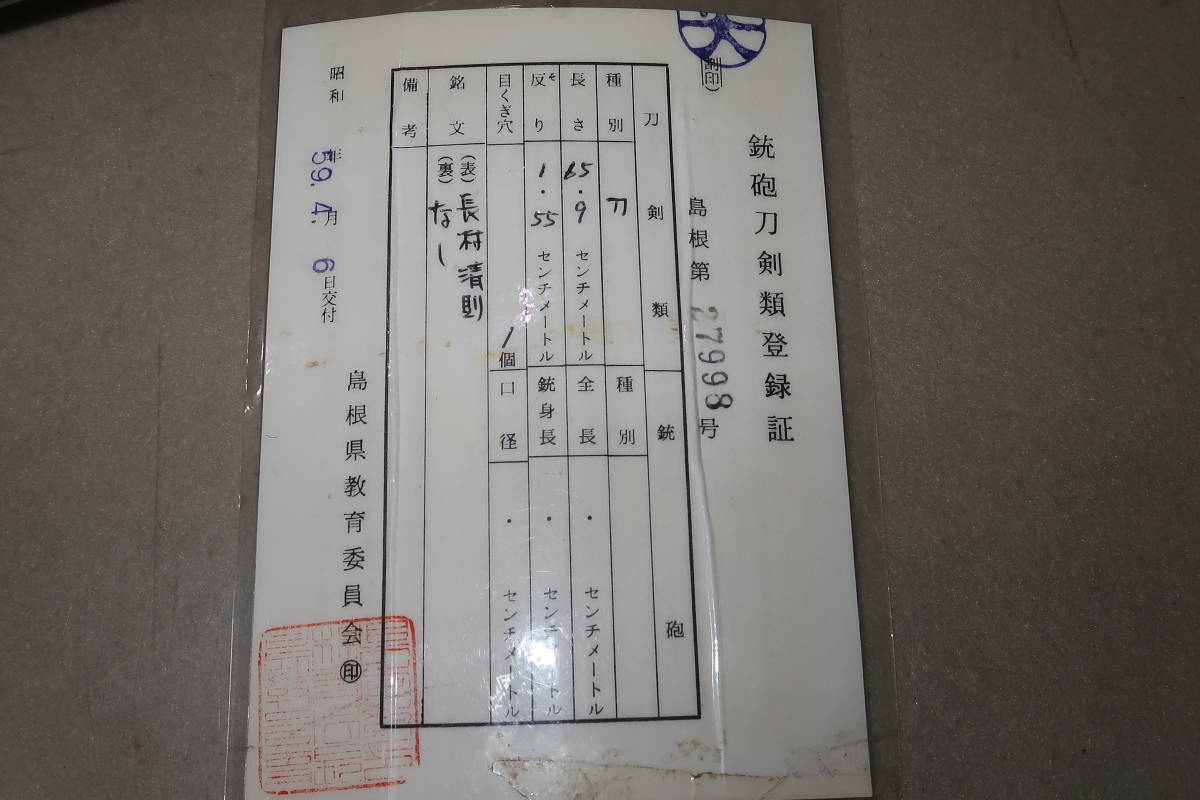 (割印)
銃砲刀剣類登録証
島根第27998号
刀剣類
銃砲
種別 刀
種別
長さ 65.9センチメートル
全長 ・ センチメートル
反り そ 1.55センチメートル
銃身長 ・ センチメートル
目くぎ穴 1個
口径 ・ センチメートル
銘文
(表)長村清則
(裏)なし
備考
昭和59年4月6日交付
島根県教育委員会㊞